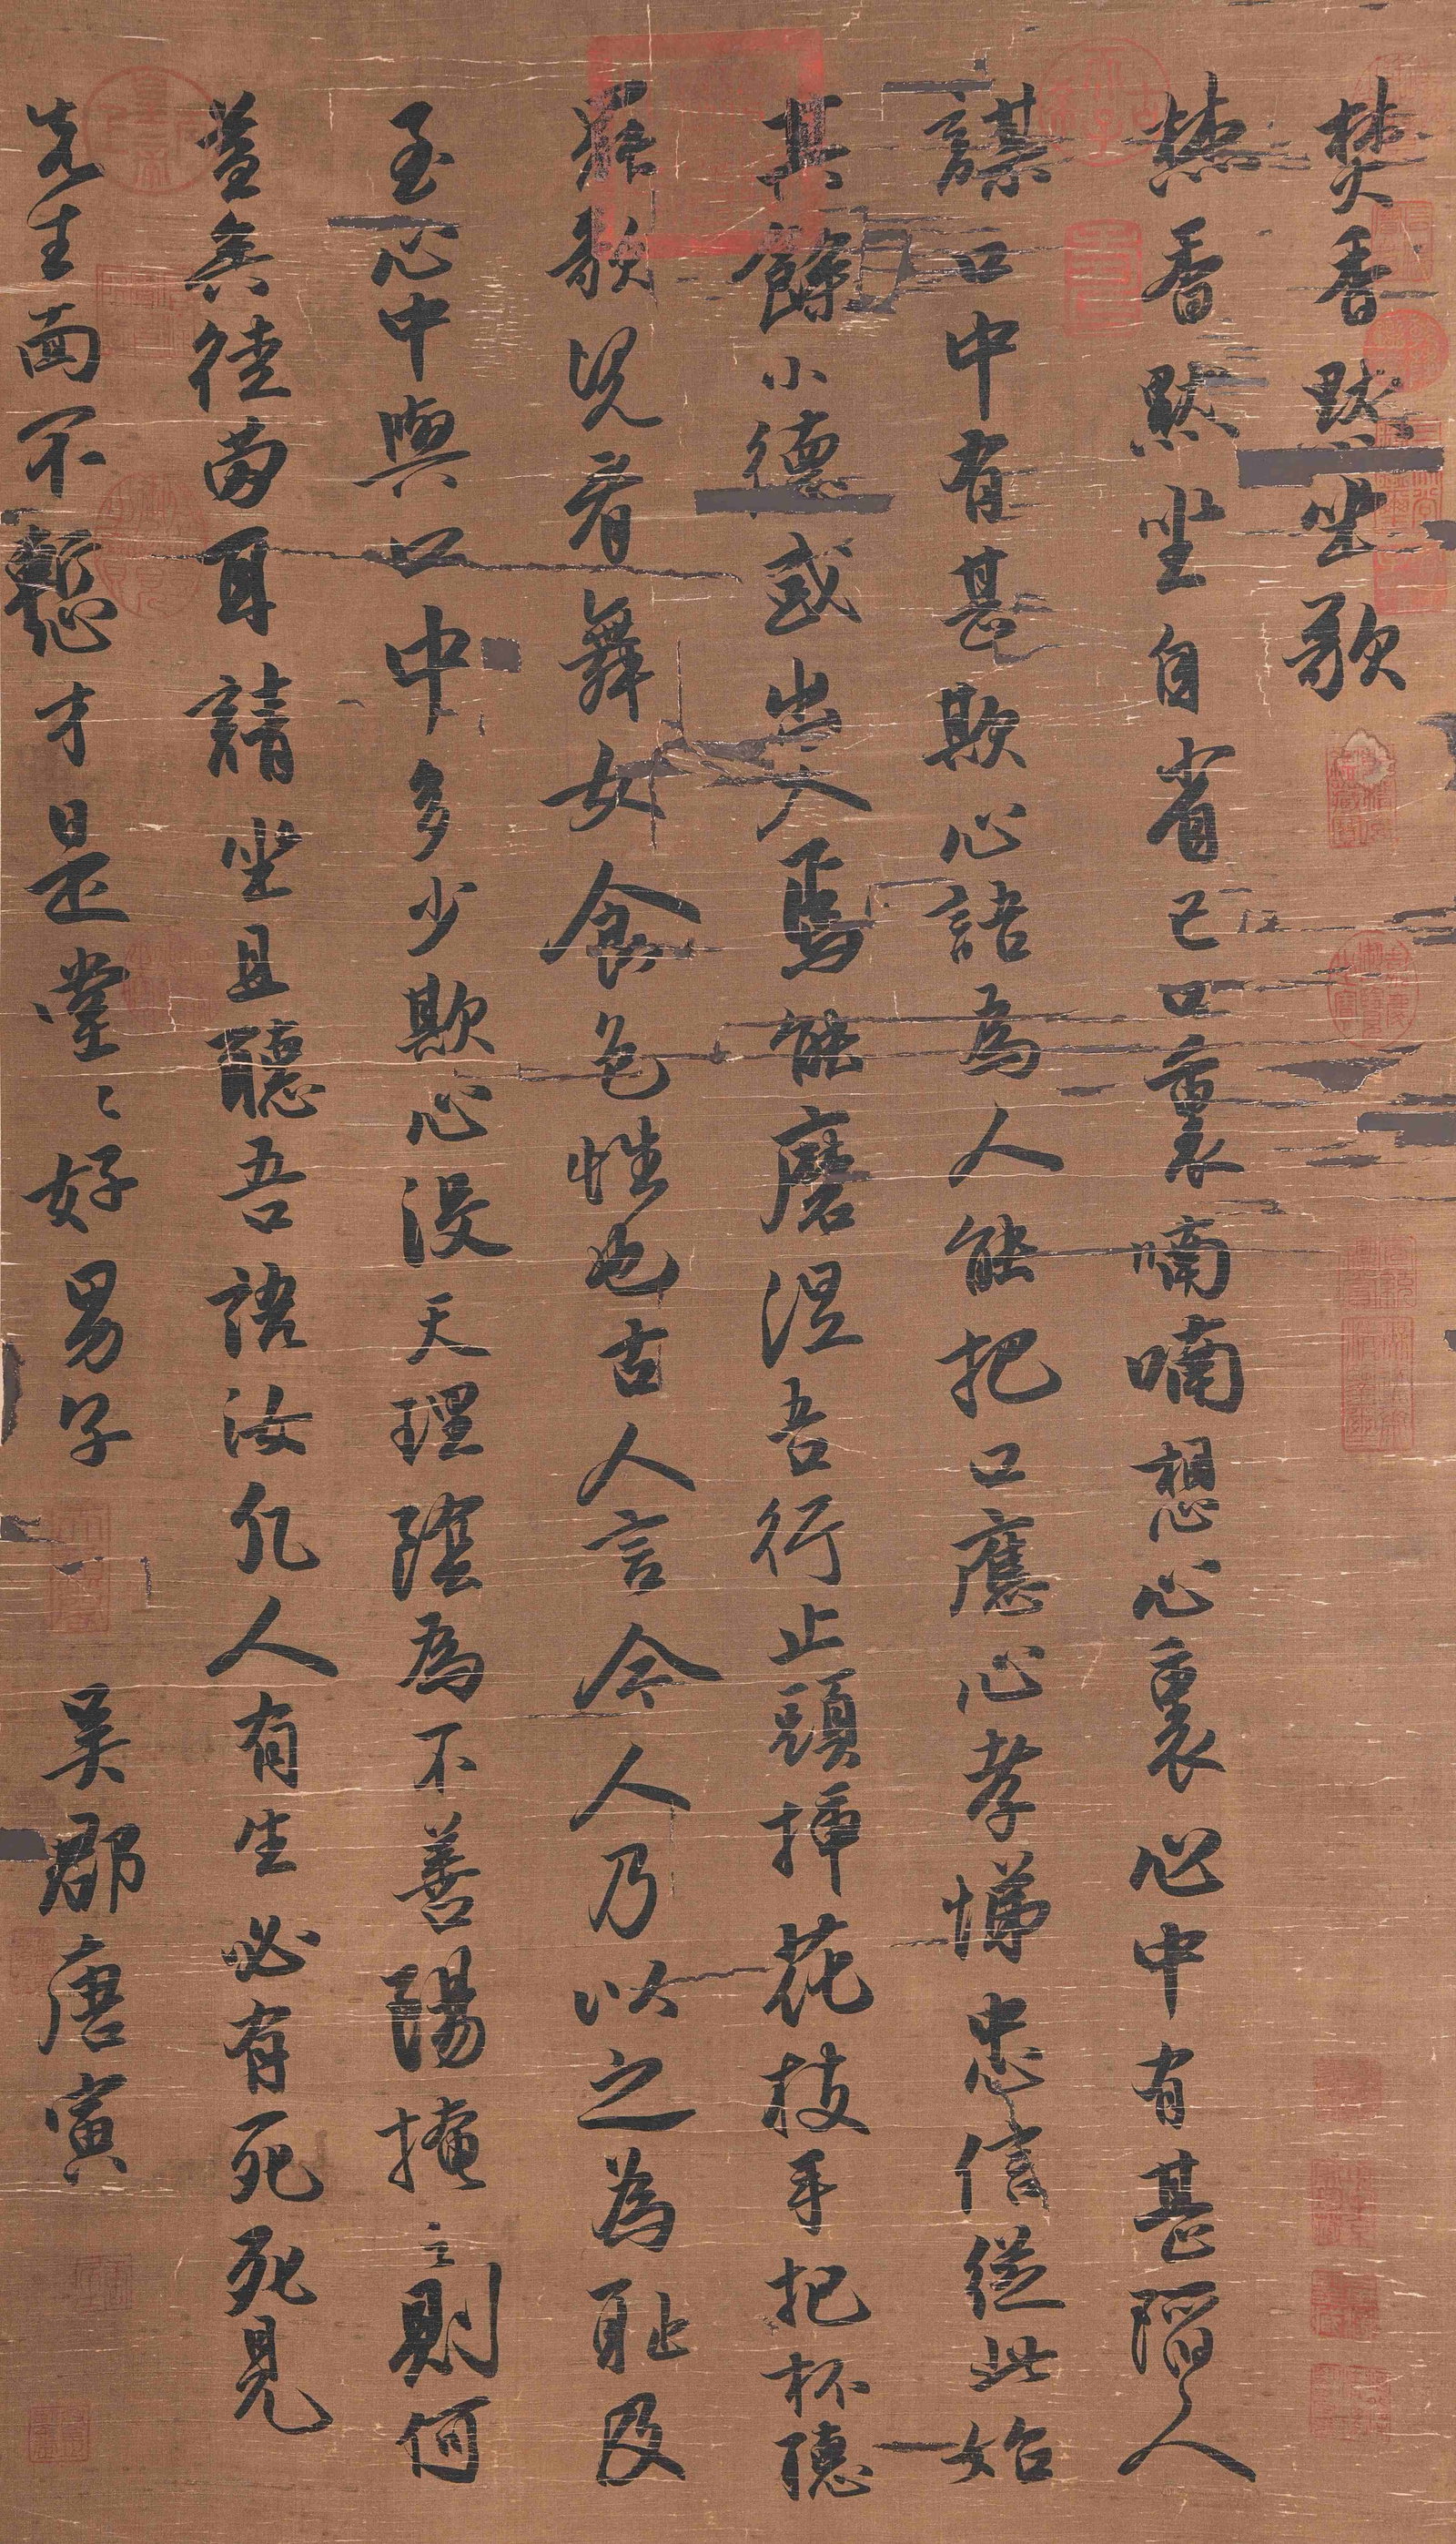 焚香默坐歌
焚香默坐自省己口裏喃喃想心裏心中有甚陷人
謀口中有甚欺心語為人能把口應心孝悌忠信從此始
其餘小德或出入焉能磨涅吾行止頭插花枝手把杯聽
罷歌兒看舞女食色性也古人言今人乃以之為恥及
至心中與口中多少欺心沒天理陰為不善陽掩之則何
益矣徒勞耳請坐且聽吾語汝凡人有生必有死死見
先生面不慙才是堂〻好男子 吳郡唐寅